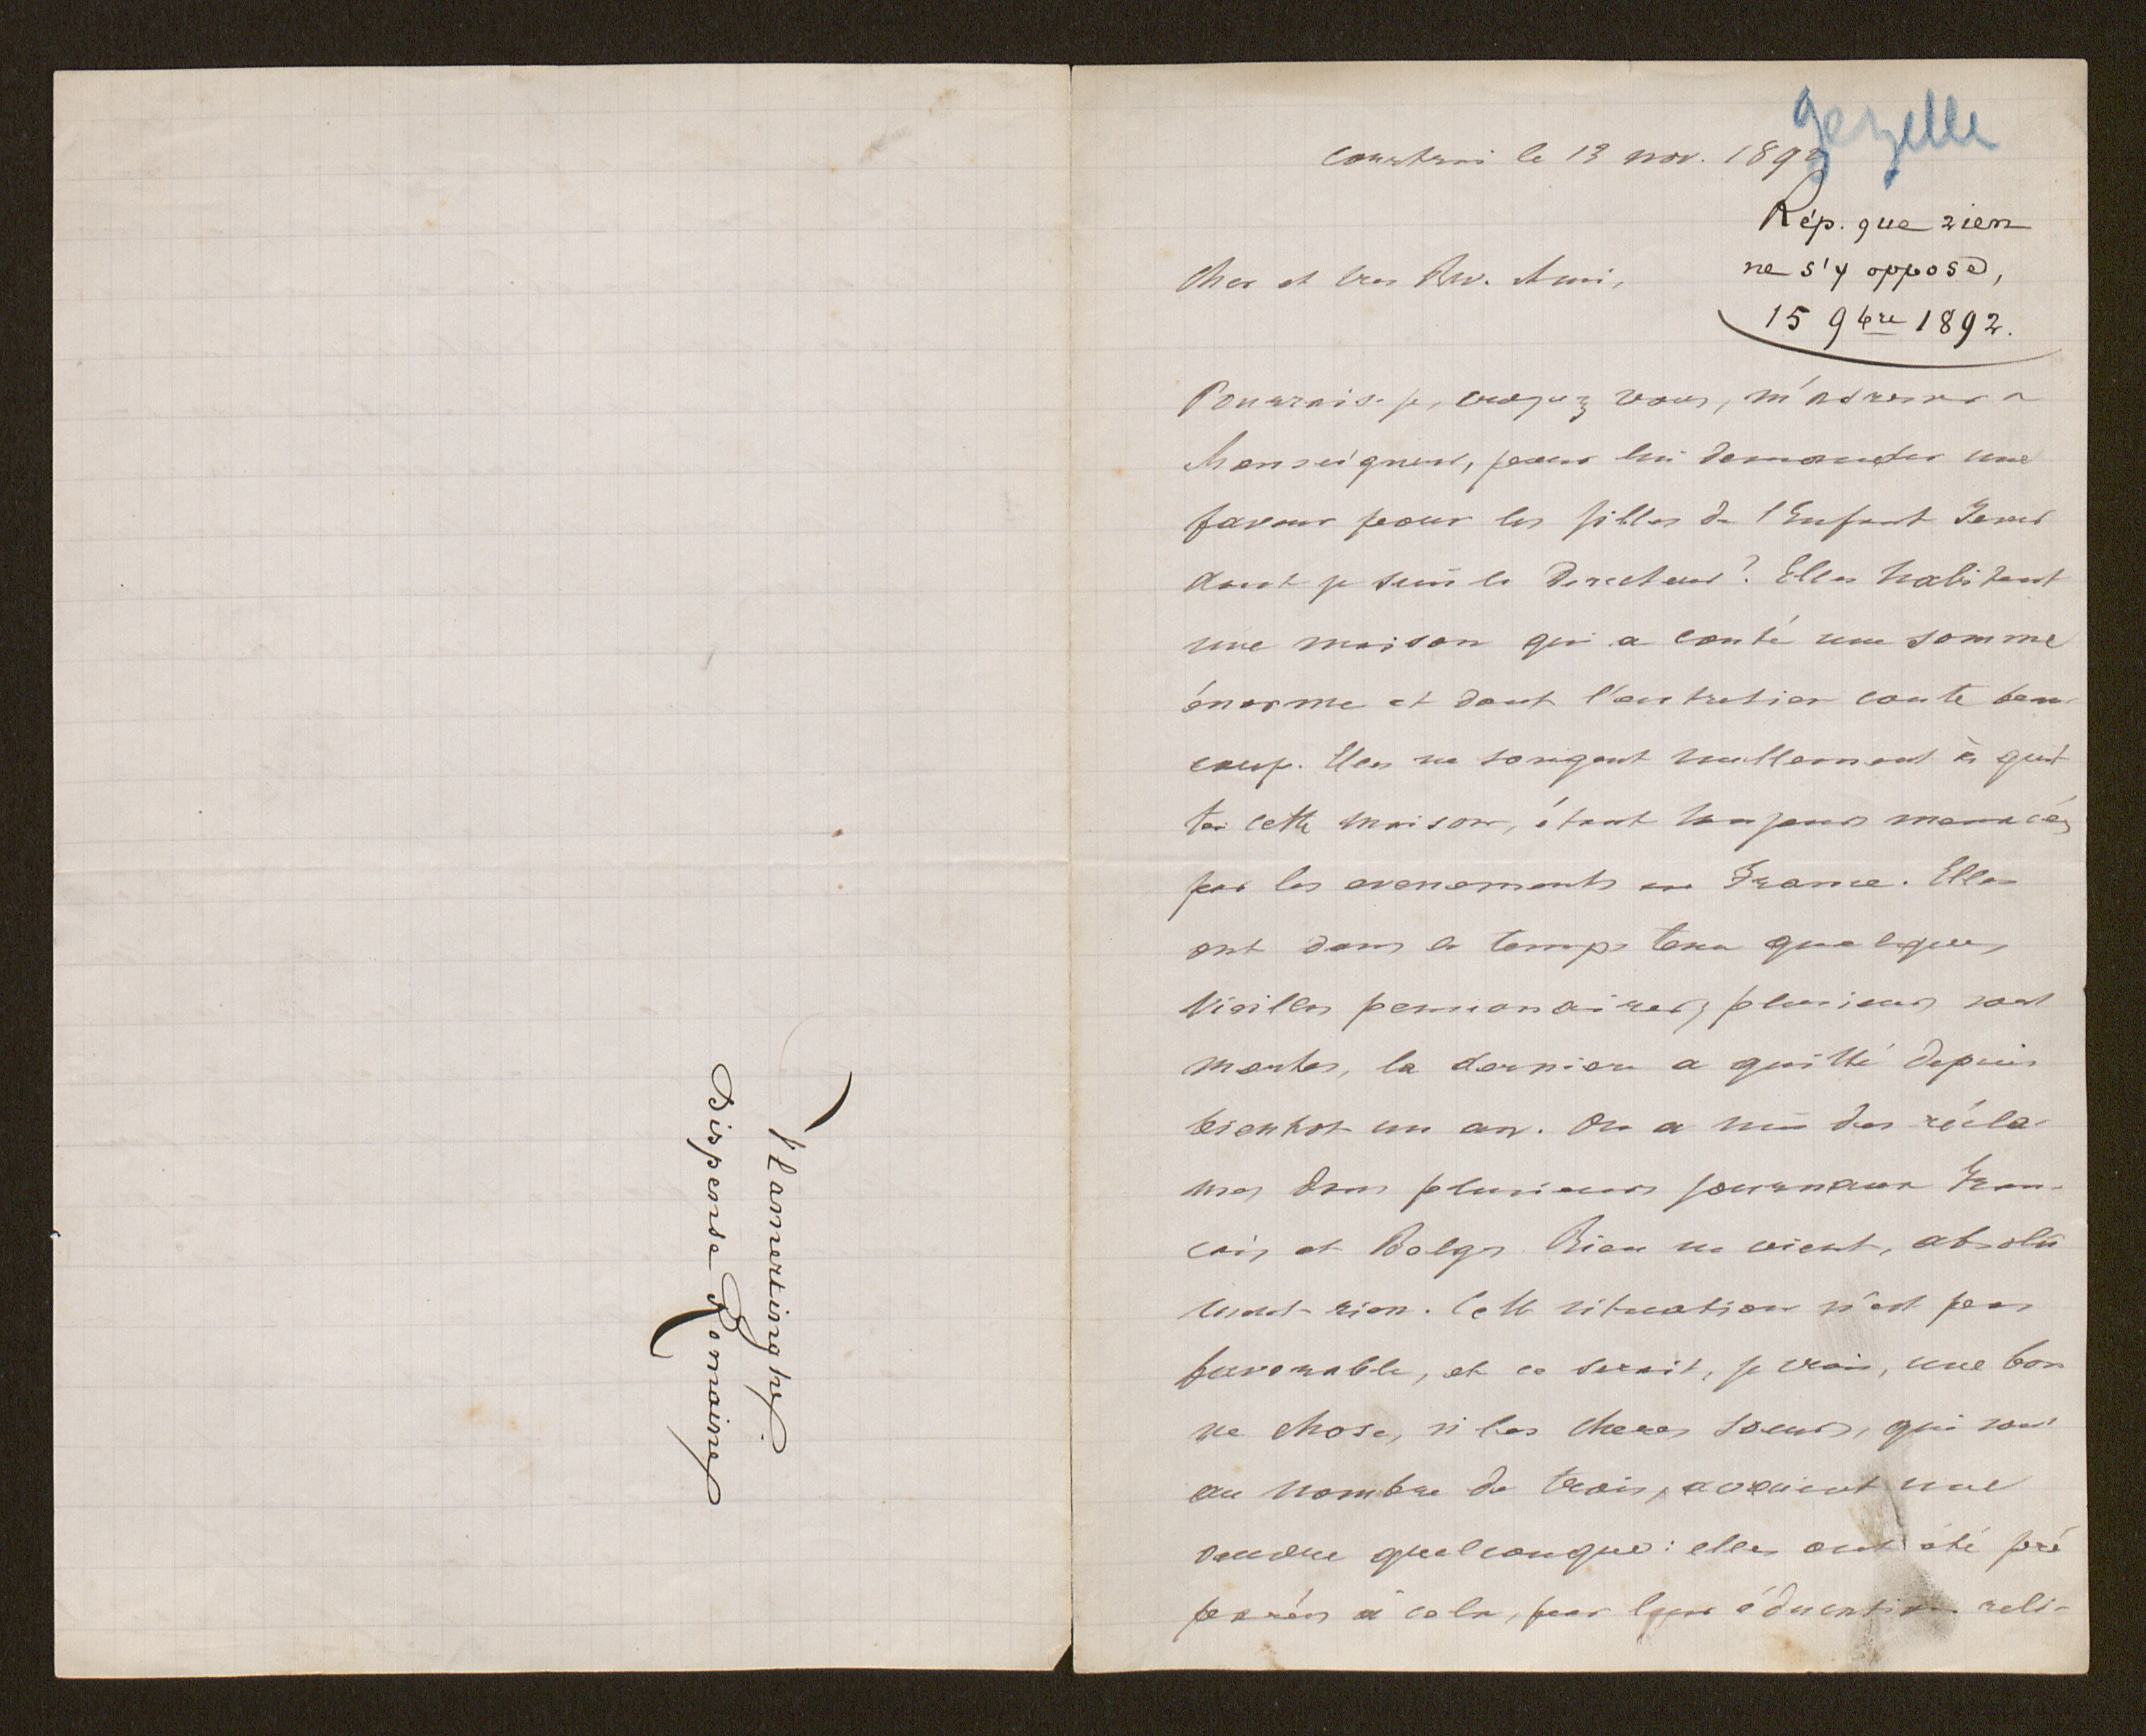 Vlamertinghe.
Dispense Romaine
gezelle
Courtrai le 13 nov. 1892
Rép. que rien
ne s'y oppose,
15 9bre 1892.
Cher et tres Rev. Ami,
Pourrais-je, croyez vous, m'adresser a
Monseigneur, pour lui demander une
faveur pour les filles de l'Enfant Jesus
dont je suis le Directeur? Elles habitent
une maison qui a couté une somme
énorme et dont l'entretien coute beau-
coup. Elles ne songent nullement à quit
ter cette maison, étant toujours menacées
par les evenements en France. Elles
ont dans le temps tenu quelques
vieilles pensionaires, plusieurs sont
mortes, la derniere a quitté depuis
bientot un an. On a mis des récla-
mes dans plusieurs journaux Fran-
cais et Belges. Rien ne vient, absolu
ment rien. Cette situation n'est pas
favorable, et ce serait, je crois, une bon
ne chose, si les cheres soeurs, qui sont
au nombre de trois, avaient une
oeuvre quelconque: elles ont été pré
parées à cela, par leur éducation reli-